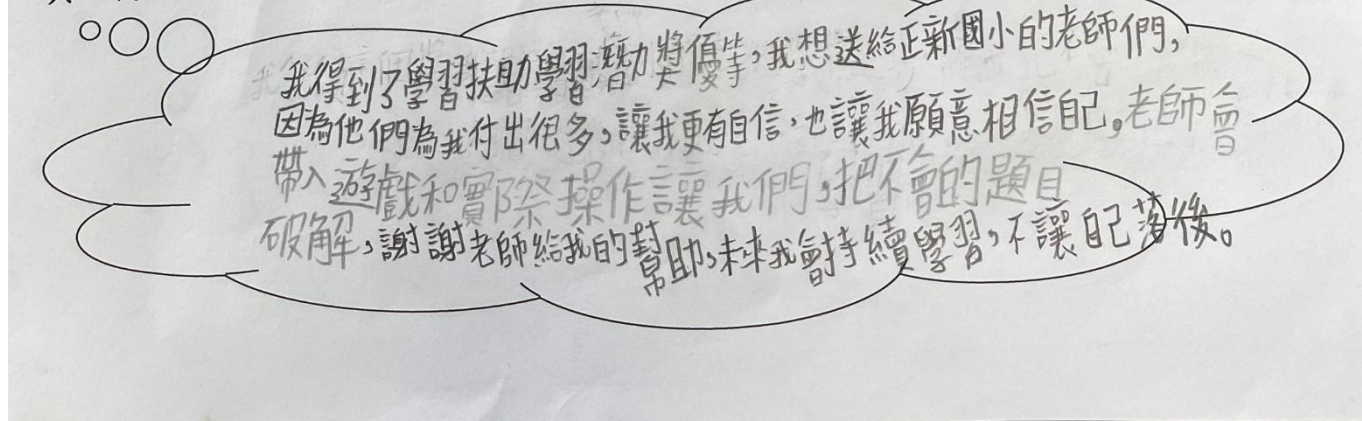 我得到了學習扶助學習潛力獎優等，我想送給正新國小的老師們，
因為他們為我付出很多，讓我更有自信，也讓我願意相信自己。老師會
帶入遊戲和實際操作讓我們，把不會的題目
破解，謝謝老師給我的幫助，未來我會持續學習，不讓自己落後。